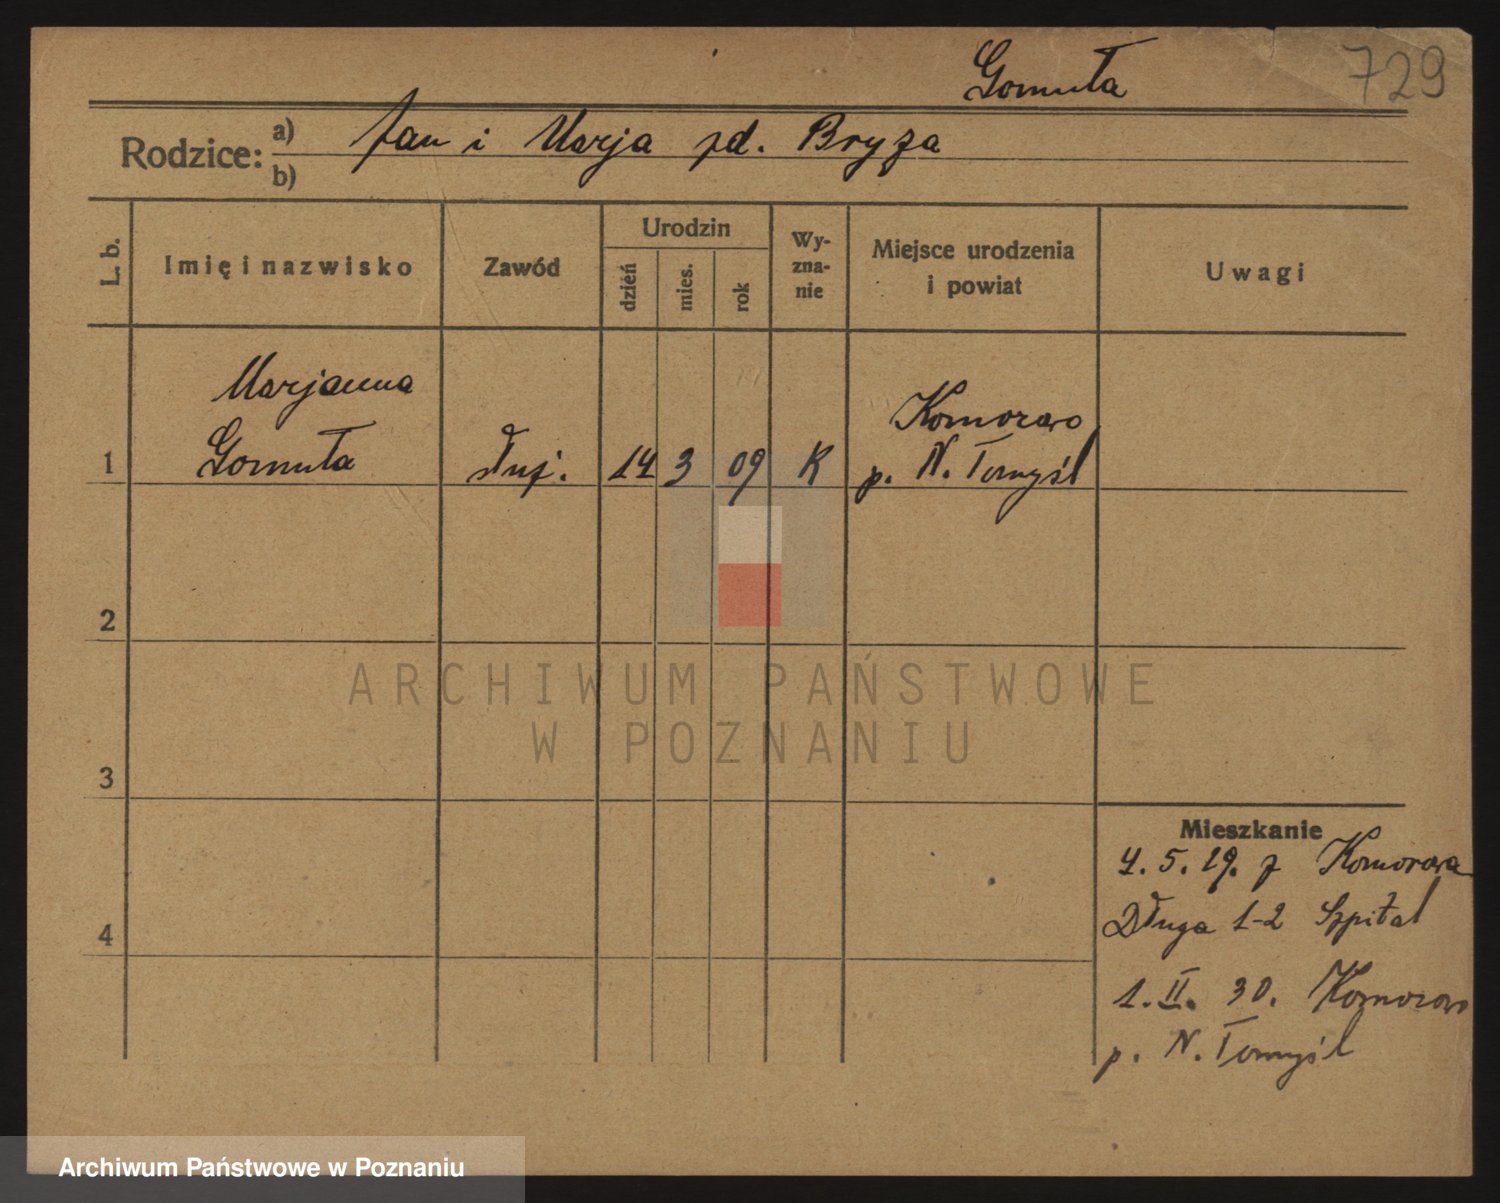 Gomuła 729
Rodzice: a) Jan i Marja zd. Bryza
b)
L. b. Imię i nazwisko Zawód Urodzin dzień mies. rok Wyznanie Miejsce urodzenia i powiat Uwagi
Marjanna
Komorowo
1 Gomuła służ. 14 3 09 K p. N. Tomyśl
2
ARCHIWUM PAŃSTWOWE
W POZNANIU
3
Mieszkanie
4. 5. 29. z Komorowa
4 Długa 1-2 Szpital
1. II. 30. Komorowo
p. N. Tomyśl
Archiwum Państwowe w Poznaniu